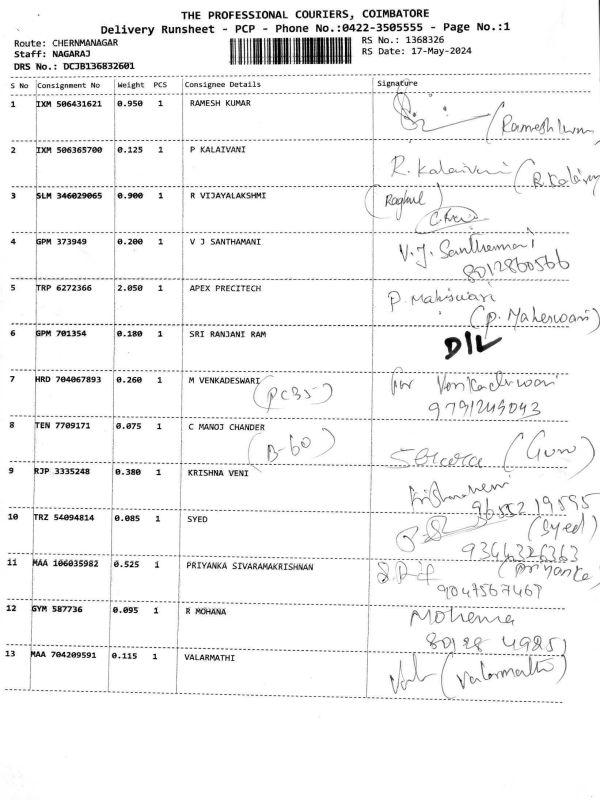 THE PROFESSIONAL COURIERS, COIMBATORE
Delivery Runsheet - PCP - Phone No.:0422-3505555 - Page No.:1
Route: CHERNMANAGAR
Staff: NAGARAJ
DRS No.: DCJB136832601
RS No.: 1368326
RS Date: 17-May-2024
S No Consignment No Weight PCS Consignee Details Signature
1 IXM 506431621 0.950 1 RAMESH KUMAR
2 IXM 506365700 0.125 1 P KALAIVANI R. Kalaivani
3 SLM 346029065 0.900 1 R VIJAYALAKSHMI (Raghul)
4 GPM 373949 0.200 1 V J SANTHAMANI V. J. Santhamani
8012860566
5 TRP 6272366 2.050 1 APEX PRECITECH P. Maheswari
(P. Maheswari)
6 GPM 701354 0.180 1 SRI RANJANI RAM D/L
7 HRD 704067893 0.260 1 M VENKADESWARI (PCB5) for
9791249043
8 TEN 7709171 0.075 1 C MANOJ CHANDER
(B-60)
9 RJP 3335248 0.380 1 KRISHNA VENI Krishnaveni
9655219595
10 TRZ 54094814 0.085 1 SYED (Syed)
9344326363
11 MAA 106035982 0.525 1 PRIYANKA SIVARAMAKRISHNAN (Priyanka)
9047567467
12 GYM 587736 0.095 1 R MOHANA Mohana
80128 49251
13 MAA 704209591 0.115 1 VALARMATHI (Valarmathi)